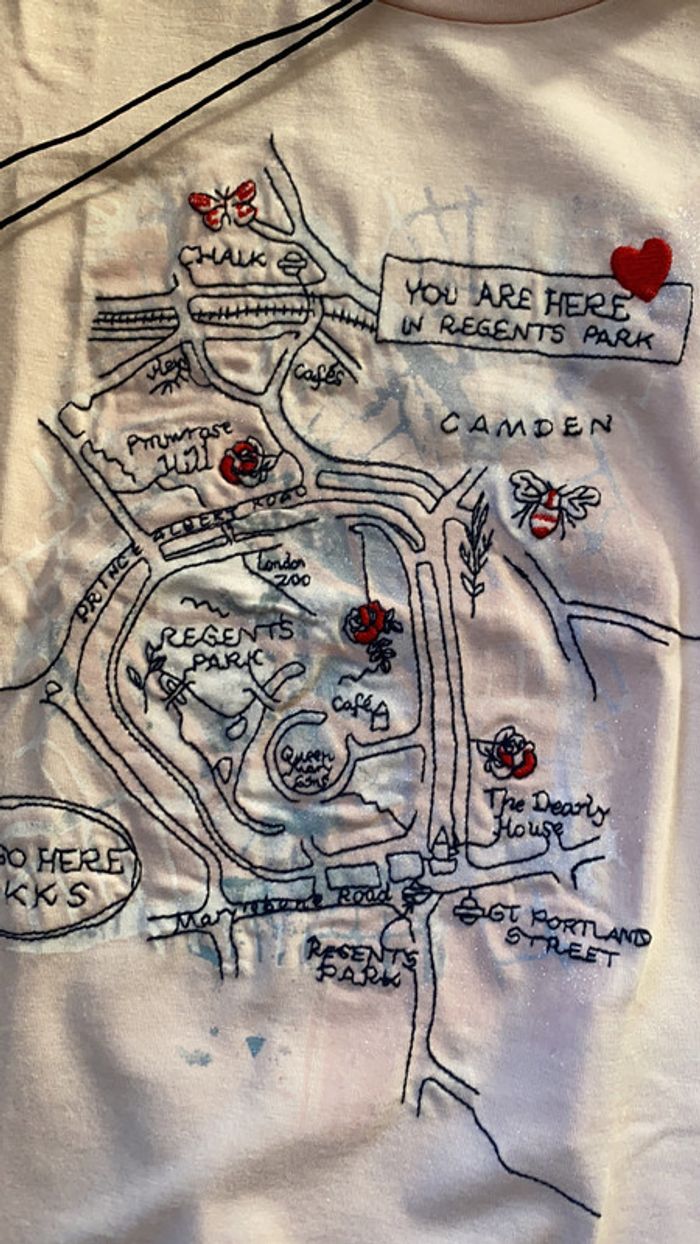 CHALK
YOU ARE HERE
IN REGENTS PARK
Cafés
CAMDEN
Primrose
Hill
PRINCE ALBERT ROAD
London
ZOO
REGENTS
PARK
Café
Queen
Mary
The Dearly
House
GO HERE
KKS
Marylebone Road
GT PORTLAND
STREET
REGENTS
PARK